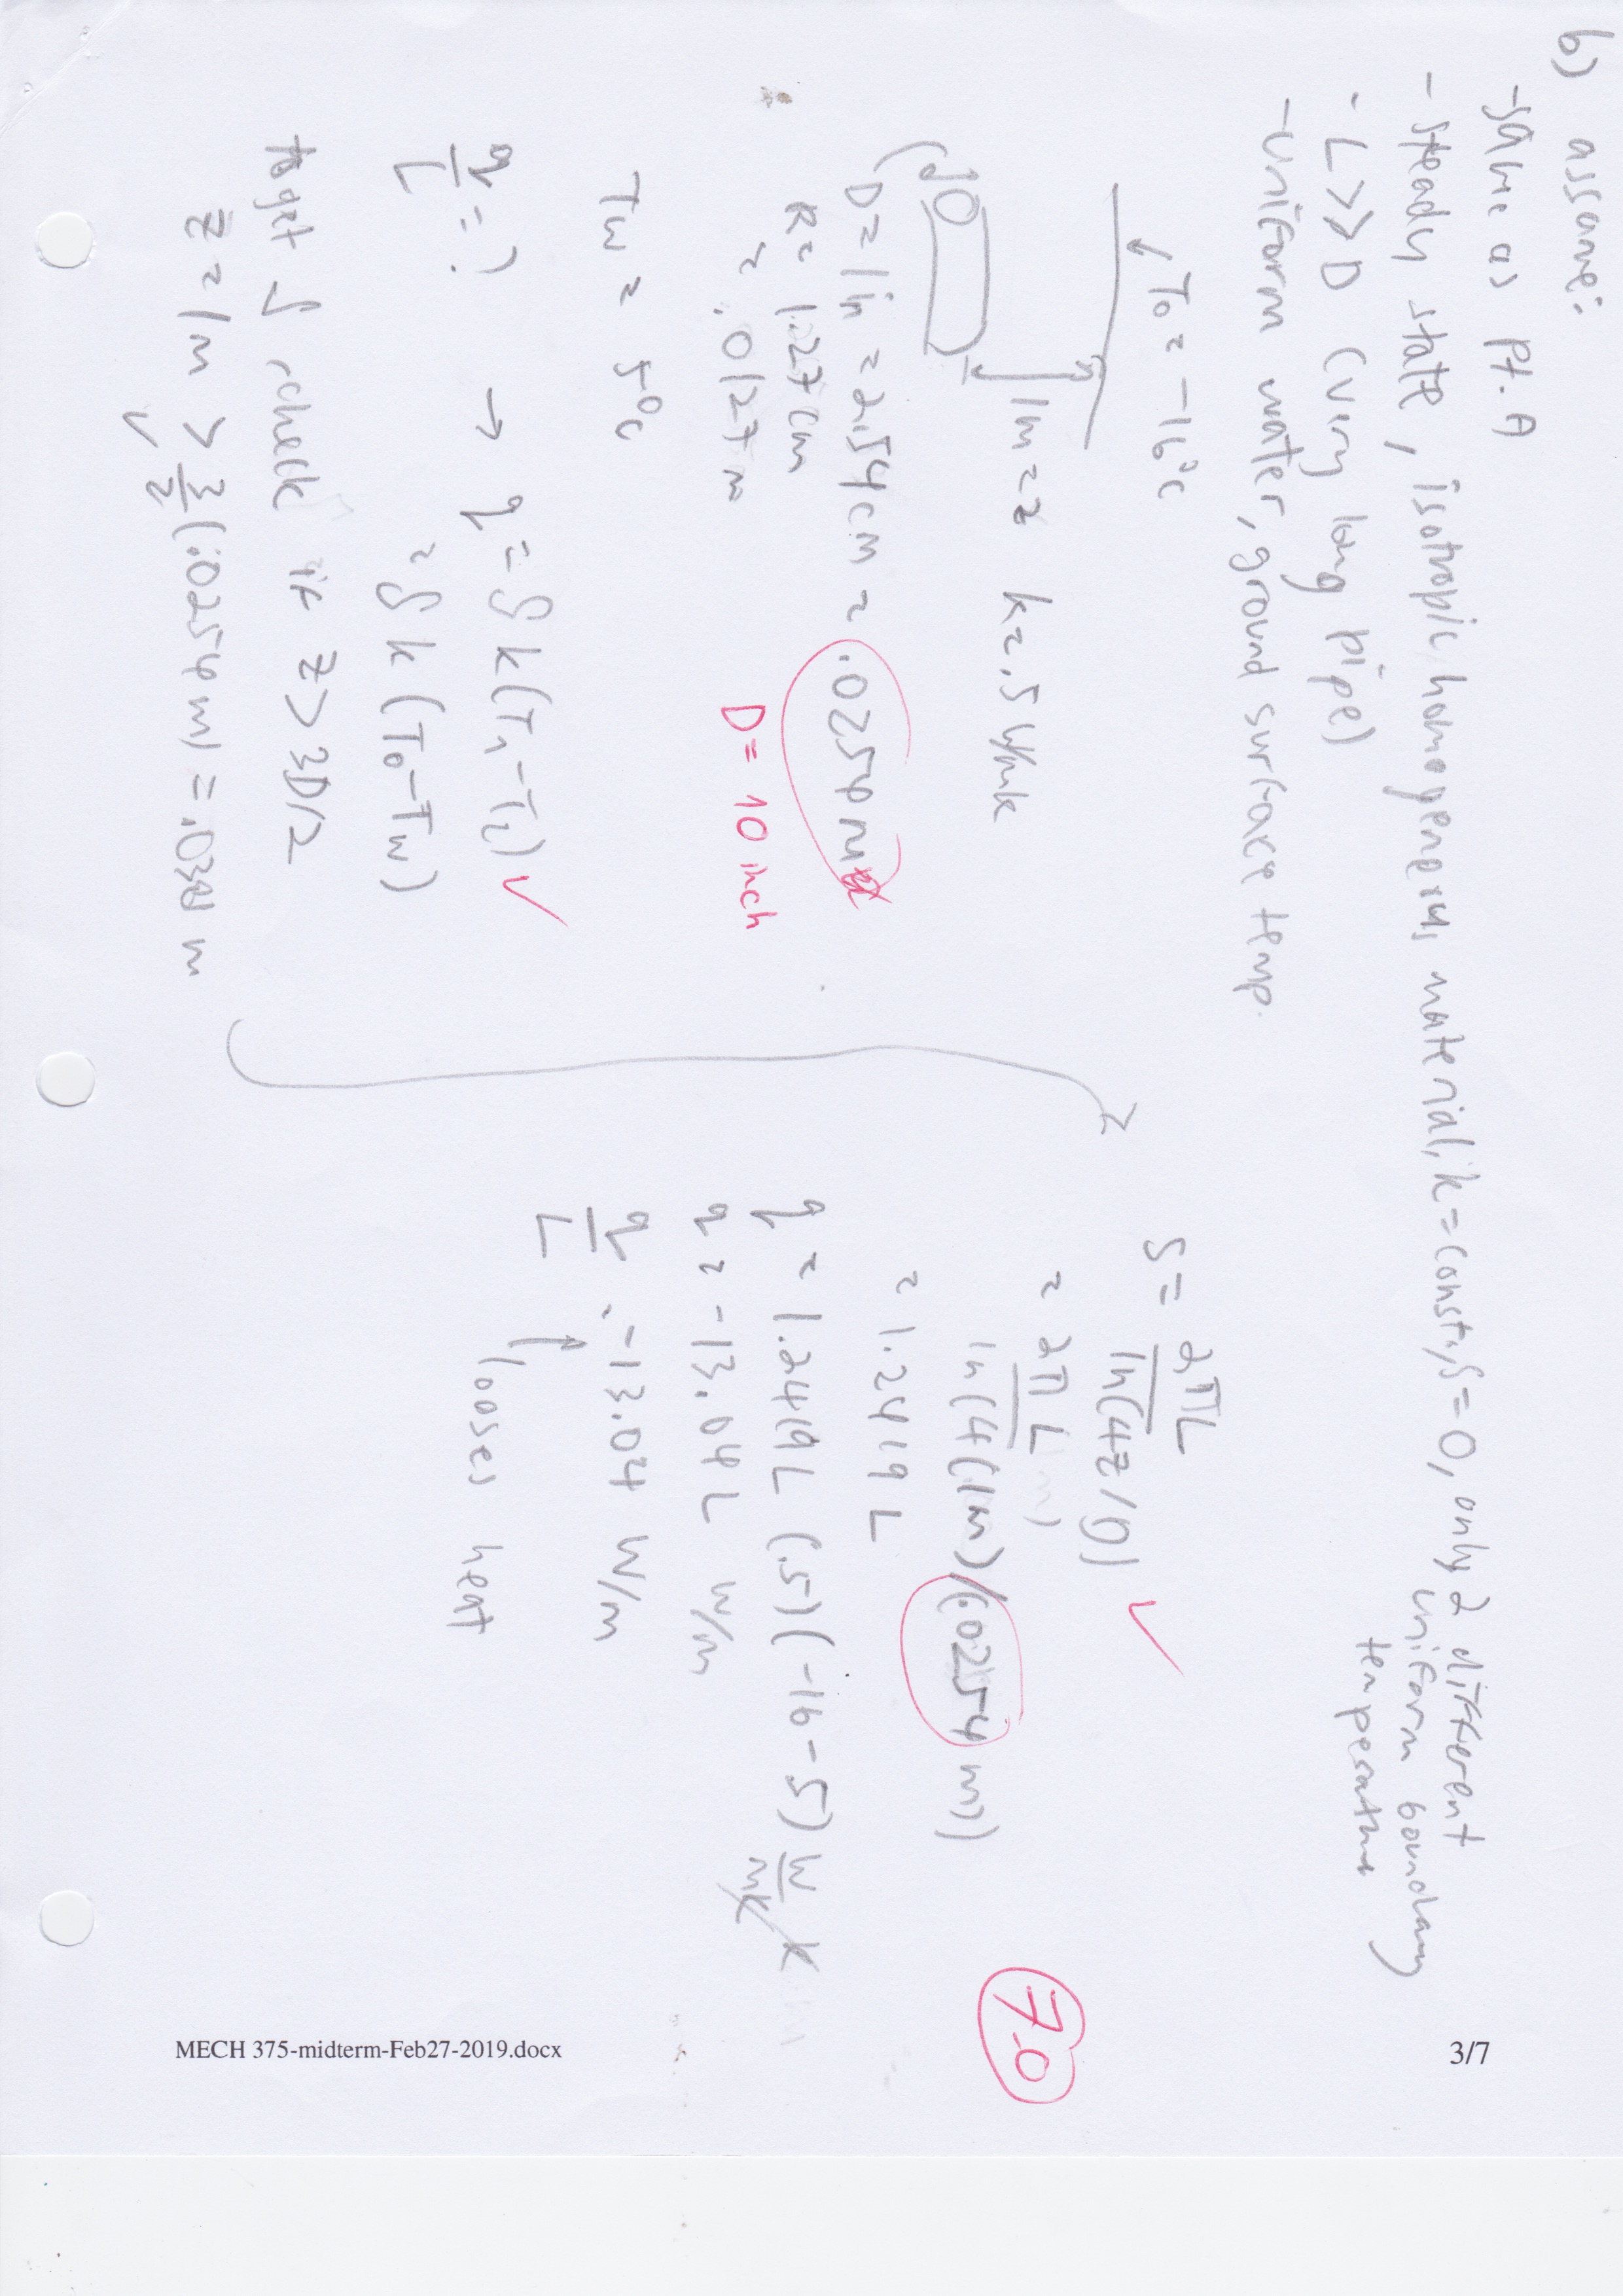 b) assume:
-same as Pt. A
- steady state, isotropic, homogeneous material, k=const, ġ=0, only 2 different
uniform boundary
temperature
- L>>D (very long pipe)
-uniform water, ground surface temp.
To = -16°C
1m = z k=.5 W/mK
D = 1in = 2.54cm = .0254m
D= 10 inch
R = 1.27cm
= .0127m
Tw = 5°C
q/L = ? → q = S k (T1-T2) ✓
= S k (To-Tw)
to get S, check if z > 3D/2
z = 1m > 3/2 (.0254m) = .0381 m
✓
S = 2πL / ln(4z/D) ✓
= 2πL / ln(4(1m)/(.0254m))
= 1.2419 L
q = 1.2419L (.5)(-16-5) W/mK K
q = -13.04 L W/m
q/L = -13.04 W/m
looses heat
7.0
3/7
MECH 375-midterm-Feb27-2019.docx